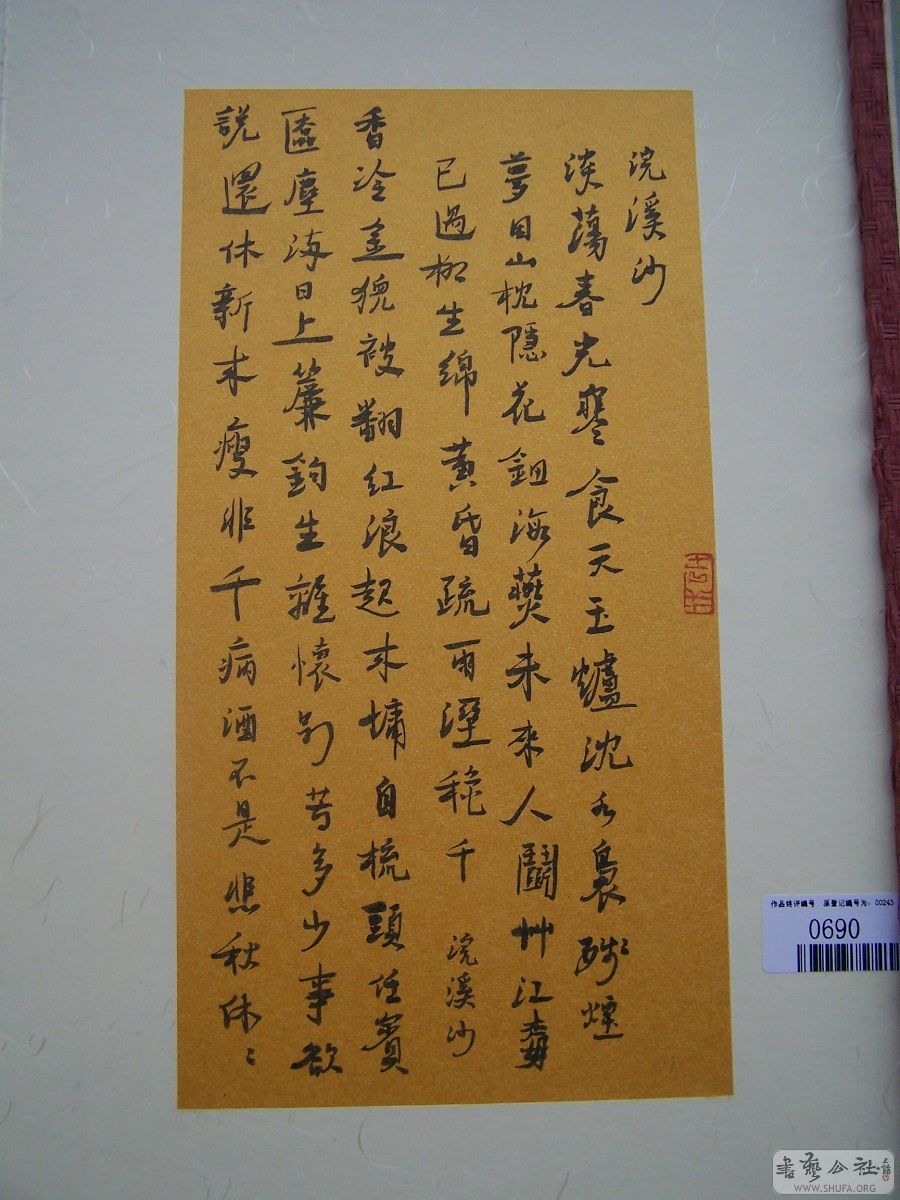 浣溪沙
淡蕩春光寒食天玉爐沈水裊殘煙
夢回山枕隱花鈿海燕未來人鬬艸江梅
已過柳生綿黃昏疏雨溼穐千 浣溪沙
香冷金猊被翻紅浪起來慵自梳頭任寶
匳塵海日上簾鉤生離懷別苦多少事欲
說還休新來瘦非干病酒不是悲秋休〻
作品终评编号 原登记编号为：00243
0690
書藝公社
WWW.SHUFA.ORG